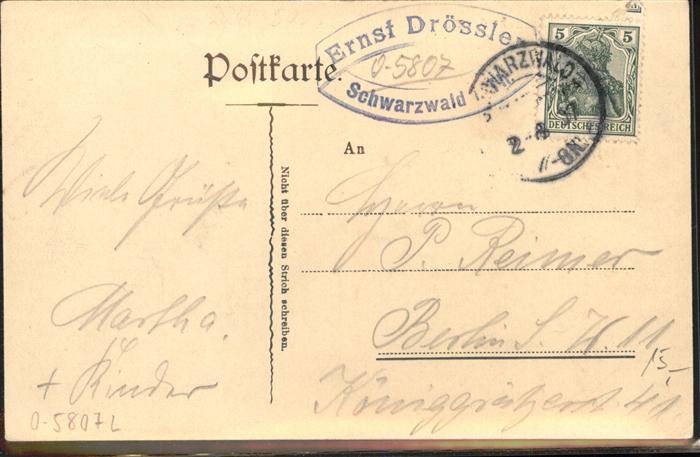 Ernst Drössle
Postkarte.
0-5807
Schwarzwald
5 5
DEUTSCHES REICH
SCHWARZWALD
2-8
7-8N.
An
Nicht über diesen Strich schreiben.
Viele Grüße
Martha.
+ Kinder
Herrn
P. Reimer
Berlin S. W. 11
Königgrätzerstr. 41.
15,-
0-5807L